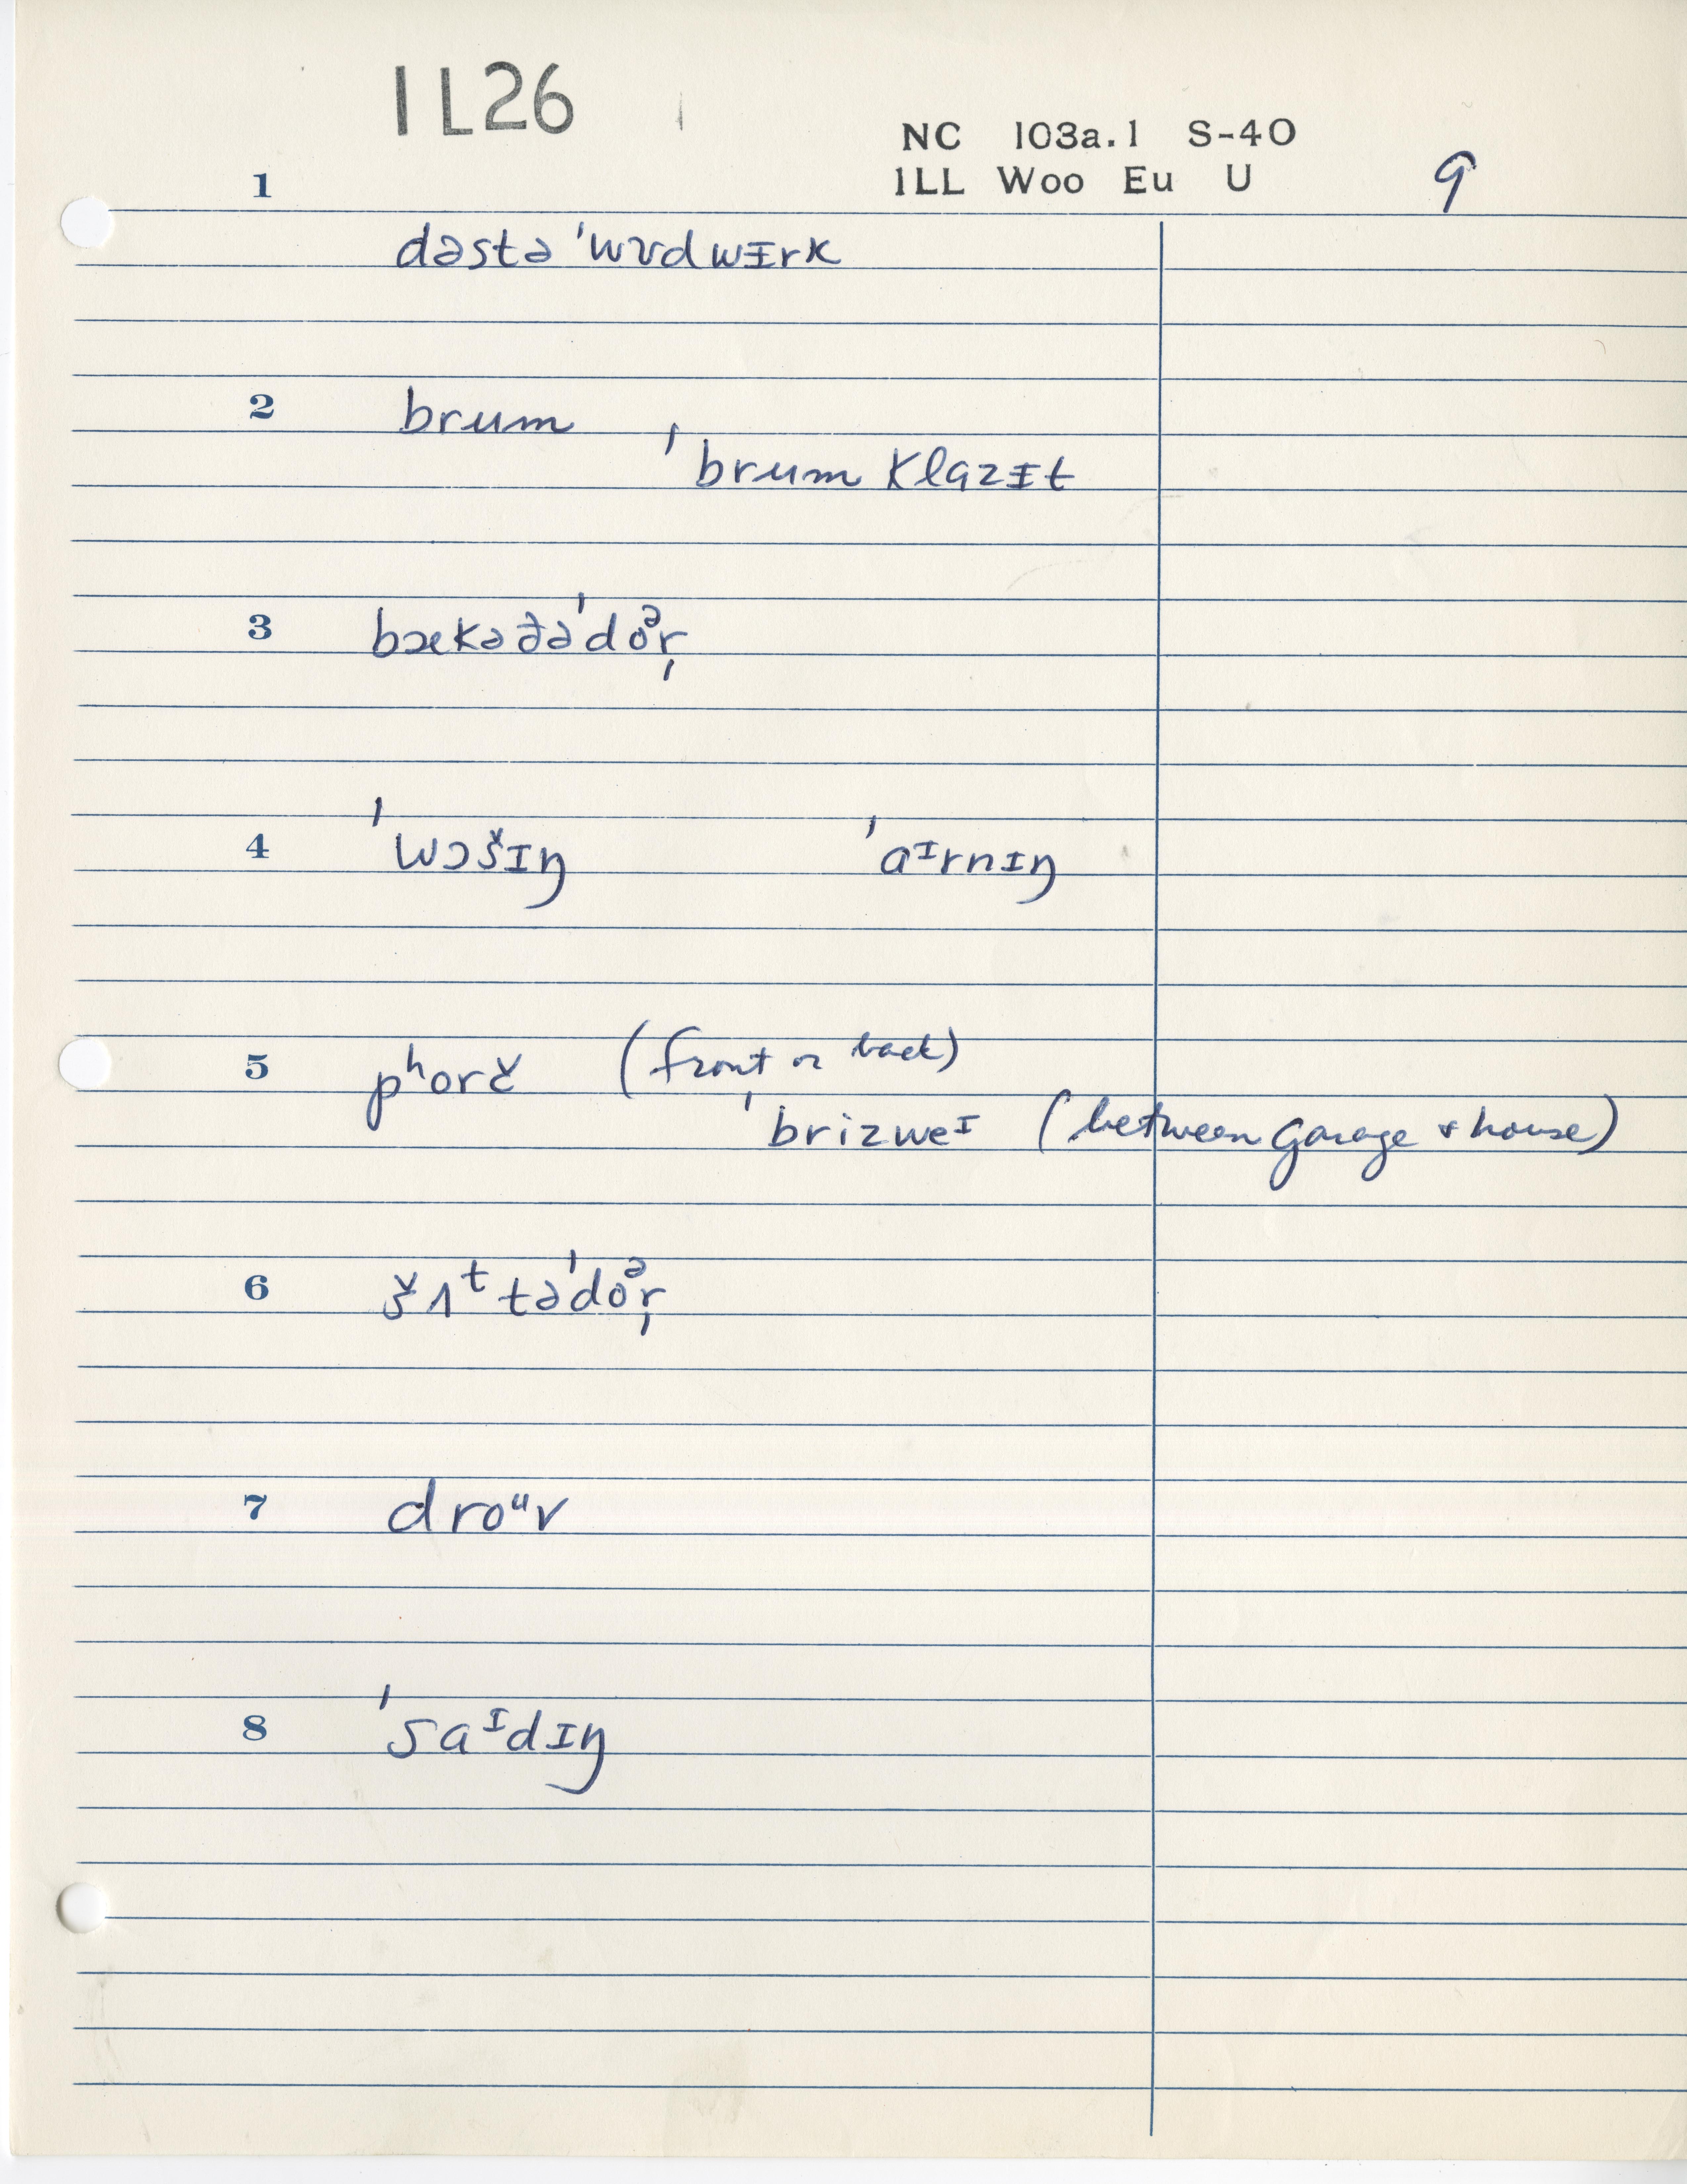 IL26
NC 103a.1 S-40
ILL Woo Eu U 9
1
dəstə ˈwʊdwɪrk
2 brum
ˈbrum klazɪt
3 bækəðəˈdoᵊr̩
4 ˈwɔšɪŋ ˈaᶦrnɪŋ
5 pʰorč (front or back)
ˈbrizweᶦ (between garage & house)
6 šʌᵗtəˈdoᵊr̩
7 droᵘv
8 ˈsaᶦdɪŋ